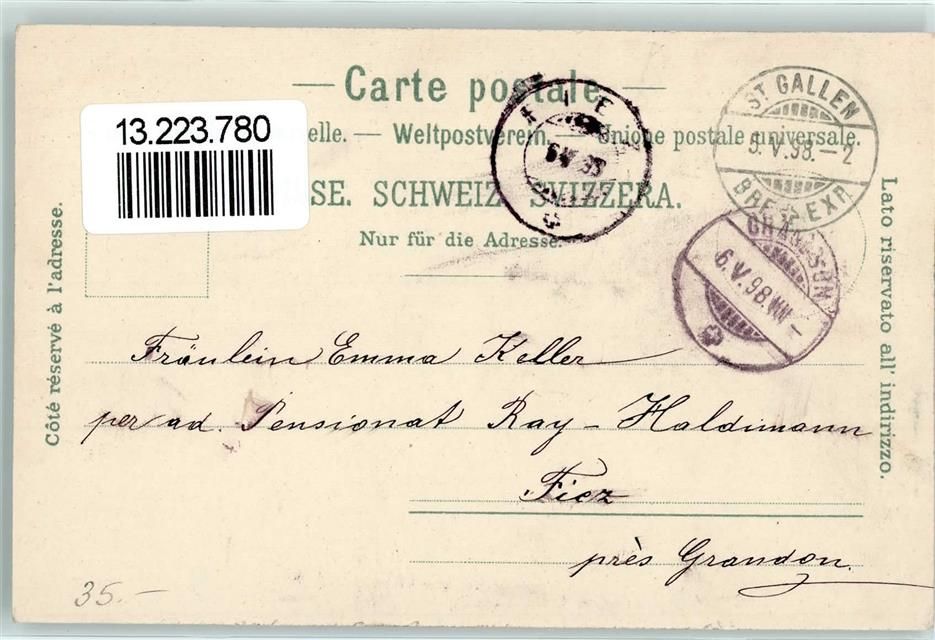 Carte postale
13.223.780
elle. — Weltpostverein. — Unione postale universale.
SE. SCHWEIZ. SVIZZERA.
Nur für die Adresse.
Côté réservé à l'adresse.
Lato riservato all' indirizzo.
ST GALLEN
5.V.98.–2
BRF. EXP.
FIEZ
6.V.98
GRANDSON
6.V.98.VII–
Fräulein Emma Keller
per ad. Pensionat Ray – Haldimann
Fiez
près Grandson.
35.–